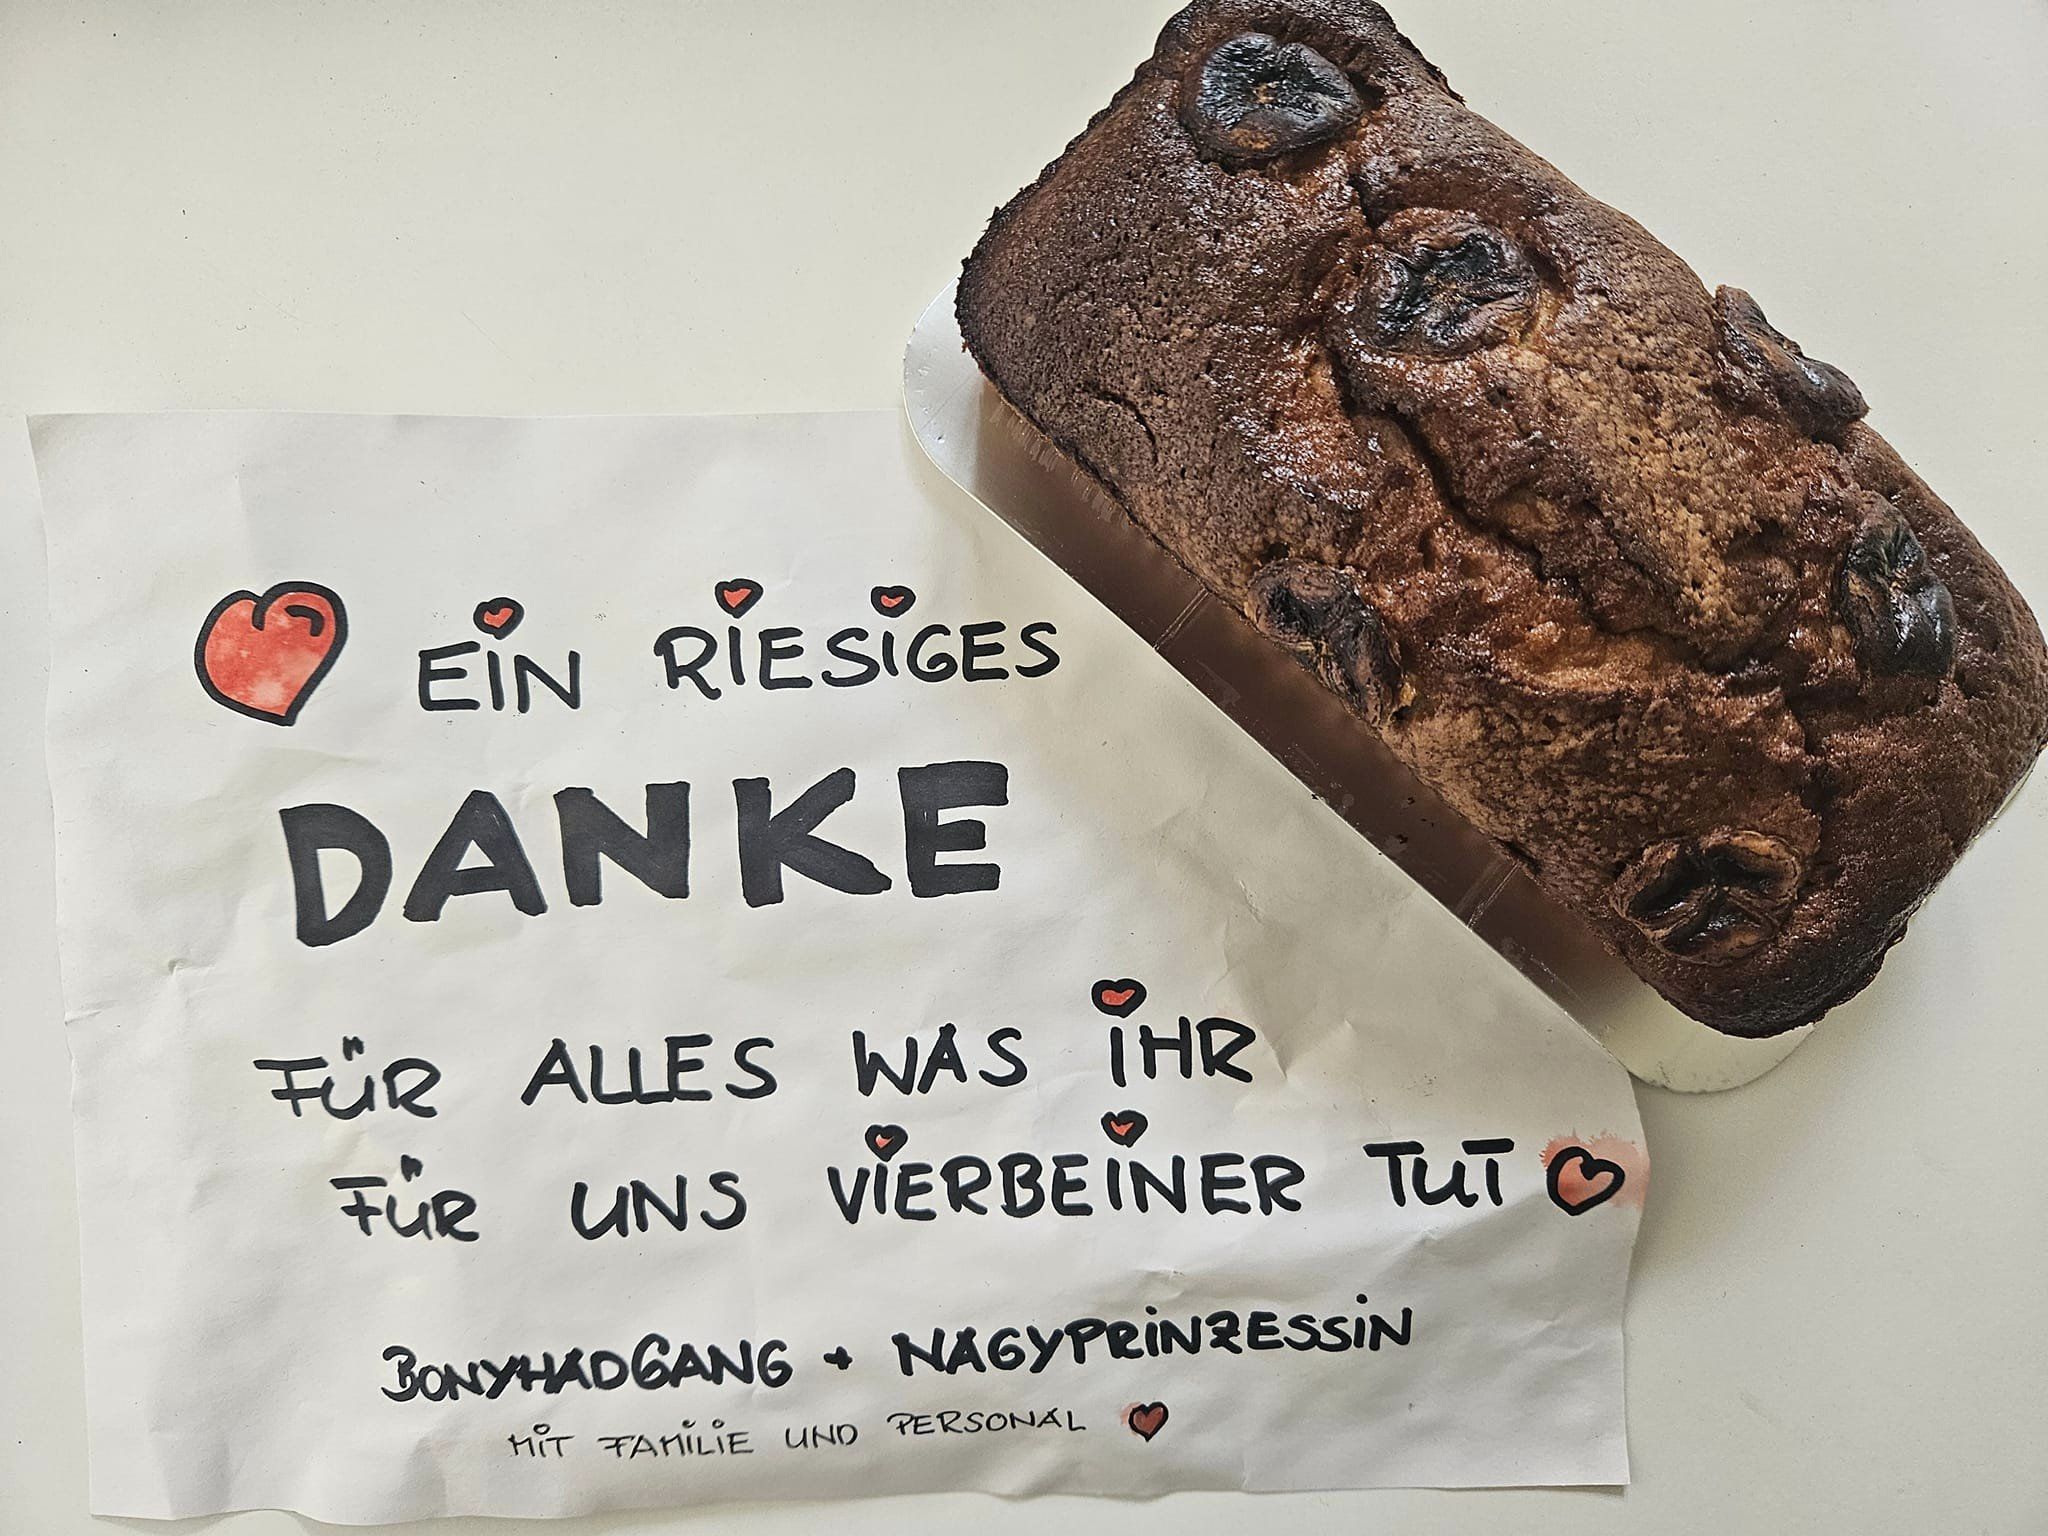 EIN RIESIGES
DANKE
FÜR ALLES WAS IHR
FÜR UNS VIERBEINER TUT
BONYHADGANG + NAGYPRINZESSIN
MIT FAMILIE UND PERSONAL